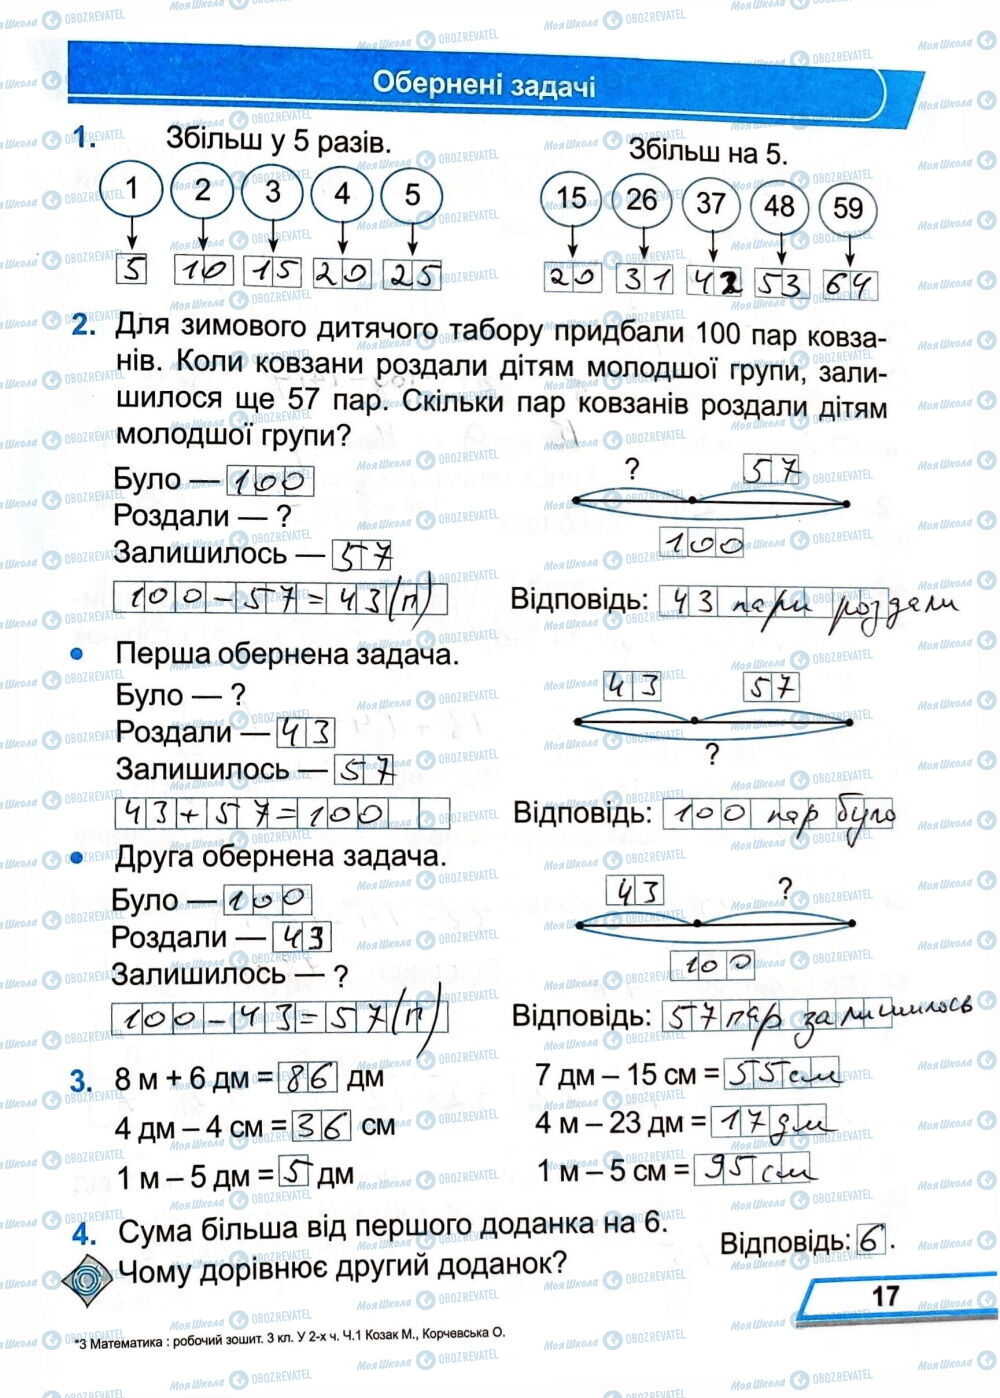 Обернені задачі
1. Збільш у 5 разів.
1 2 3 4 5
5 10 15 20 25
Збільш на 5.
15 26 37 48 59
20 31 42 53 64
2. Для зимового дитячого табору придбали 100 пар ковза-
нів. Коли ковзани роздали дітям молодшої групи, зали-
шилося ще 57 пар. Скільки пар ковзанів роздали дітям
молодшої групи?
Було — 100
Роздали — ?
Залишилось — 57
? 57
100
100-57=43(п)
Відповідь: 43 пари роздали
• Перша обернена задача.
Було — ?
Роздали — 43
Залишилось — 57
43 57
?
43+57=100
Відповідь: 100 пар було
• Друга обернена задача.
Було — 100
Роздали — 43
Залишилось — ?
43 ?
100
100-43=57(п)
Відповідь: 57 пар залишилось
3. 8 м + 6 дм = 86 дм
4 дм – 4 см = 36 см
1 м – 5 дм = 5 дм
7 дм – 15 см = 55 см
4 м – 23 дм = 17 дм
1 м – 5 см = 95 см
4. Сума більша від першого доданка на 6.
Чому дорівнює другий доданок?
Відповідь: 6.
17
*3 Математика : робочий зошит. 3 кл. У 2-х ч. Ч.1 Козак М., Корчевська О.
МояШкола OBOZREVATEL